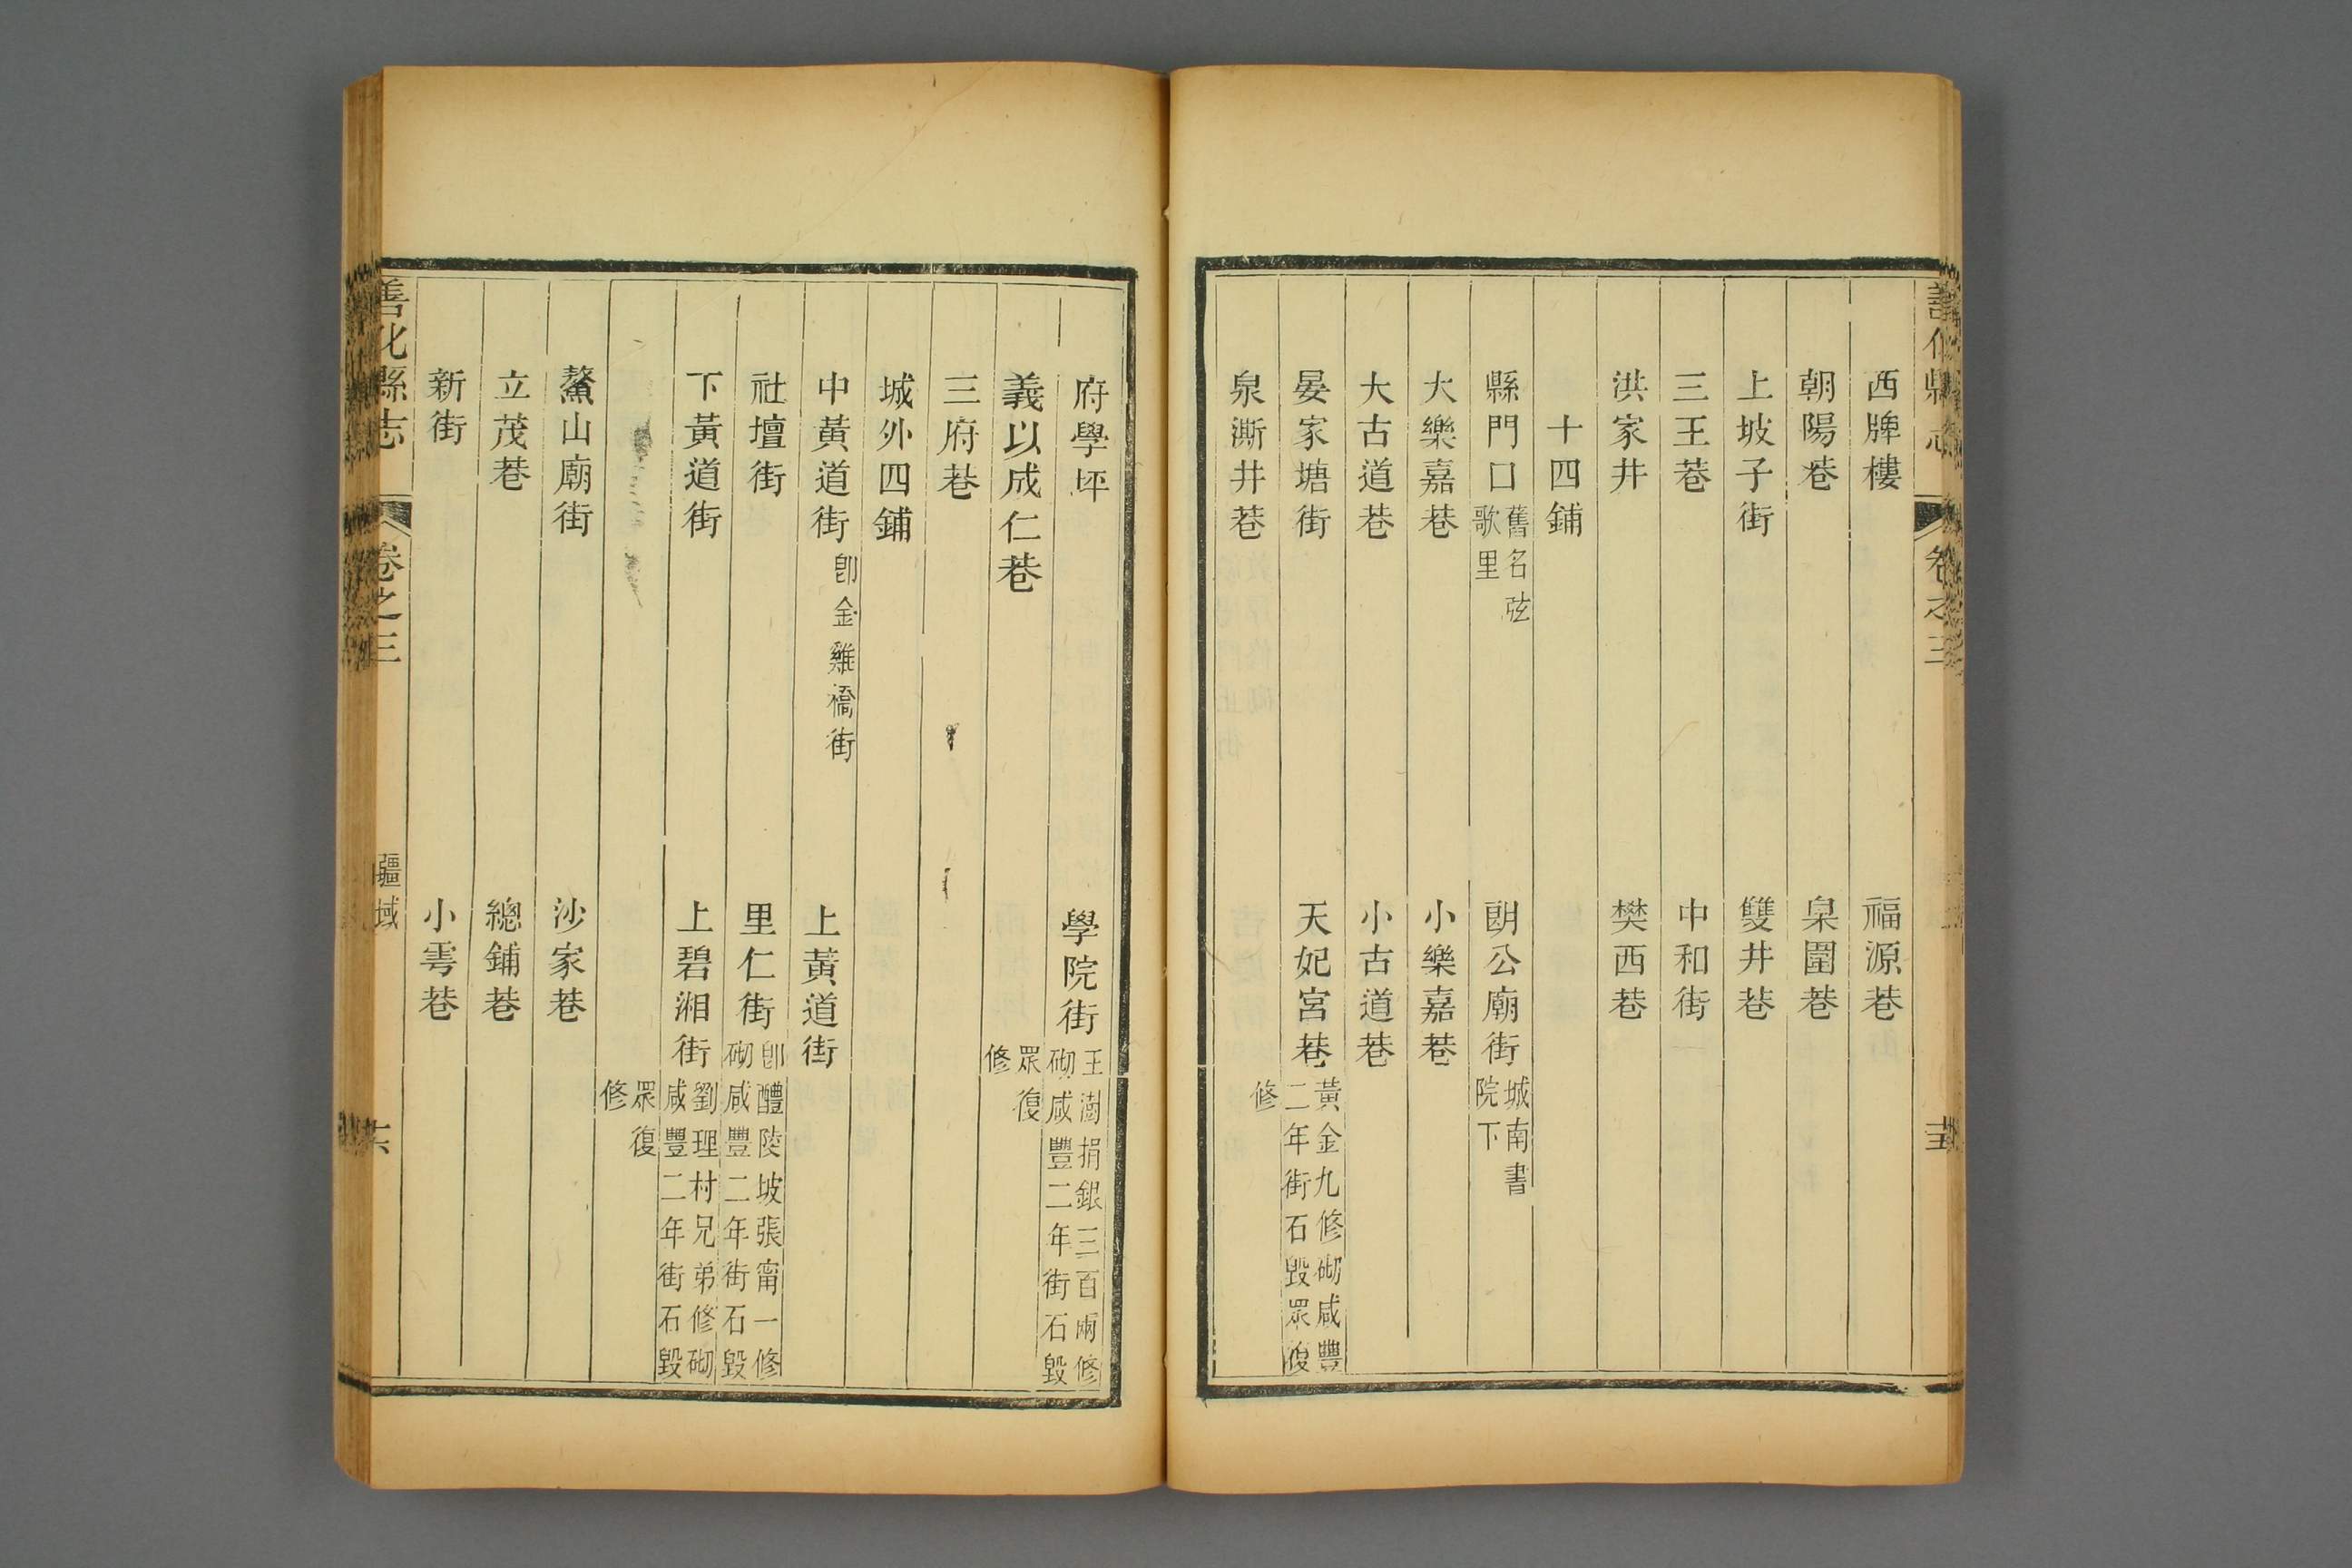 善化縣志 卷之三
西牌樓 福源巷
朝陽巷 臬圍巷
上坡子街 雙井巷
三王巷 中和街
洪家井 樊西巷
十四鋪
縣門口 舊名弦歌里 朗公廟街 城南書院下
大樂嘉巷 小樂嘉巷
大古道巷 小古道巷
晏家塘街 天妃宮巷 黃金九修砌咸豐二年街石毀眾復修
泉澌井巷
府學坪 學院街 王澍捐銀三百兩修砌咸豐二年街石毀眾復修
義以成仁巷
三府巷
城外四鋪
中黃道街 卽金雞橋街 上黃道街
社壇街 里仁街 卽醴陵坡張甯一修砌咸豐二年街石毀
下黃道街 上碧湘街 劉理村兄弟修砌咸豐二年街石毀眾復修
鰲山廟街 沙家巷
立茂巷 總鋪巷
新街 小雩巷
善化縣志 卷之三 疆域